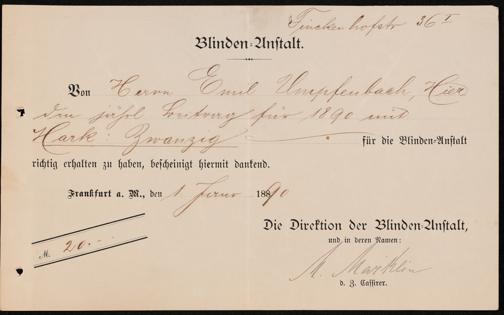 Finckenhofstr 36 I
Blinden-Anstalt.
Von Herrn Emil Umpfenbach, Hier
den jährl Beitrag für 1890 mit
Mark: Zwanzig für die Blinden-Anstalt
richtig erhalten zu haben, bescheinigt hiermit dankend.
Frankfurt a. M., den 1 Janr 1890
Die Direktion der Blinden-Anstalt,
und in deren Namen:
M. 20.--
M. Märklin
d. Z. Cassirer.